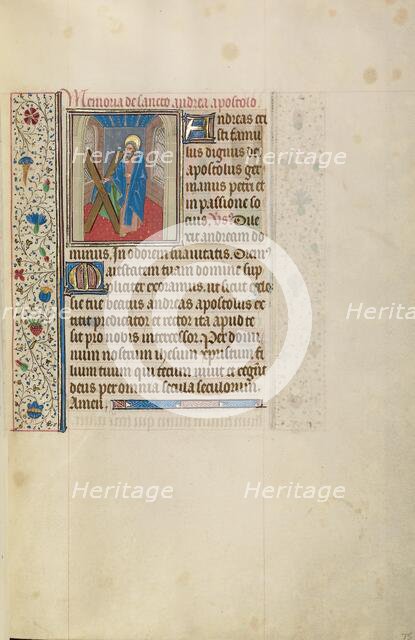 Memoria de sancto andrea apostolo.
Andreas cri
sti famu
lus dignus dei
apostolus ger
manus petri et
in passione so
cius. Vs. Dile
xit andream do
minus, In odorem suavitatis. Oremus
Maiestatem tuam domine sup
pliciter exoramus, ut sicut eccle
sie tue beatus andreas apostolus ex
titit predicator et rector ita apud te
sit pro nobis intercessor. Per domi
num nostrum ihesum xpristum fi
lium tuum qui tecum vivit et regnat
deus per omnia secula seculorum.
Amen.
Heritage
Heritage
Heritage
Heritage
Heritage
Heritage
Heritage
Heritage